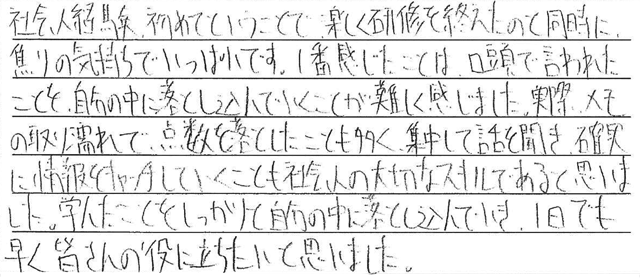 社会人経験、初めてということで、楽しく研修を終えたのと同時に、
焦りの気持ちでいっぱいです。1番感じたことは、口頭で言われた
ことを、自分の中に落とし込んでいくことが難しく感じました。実際、メモ
の取り濡れで、点数を落としたことも多く、集中して話を聞き、確実
に情報をキャッチしていくことも社会人の大切なスキルであると思いま
した。学んだことをしっかりと自分の中に落とし込んでいき、1日でも
早く皆さんの役に立ちたいと思いました。